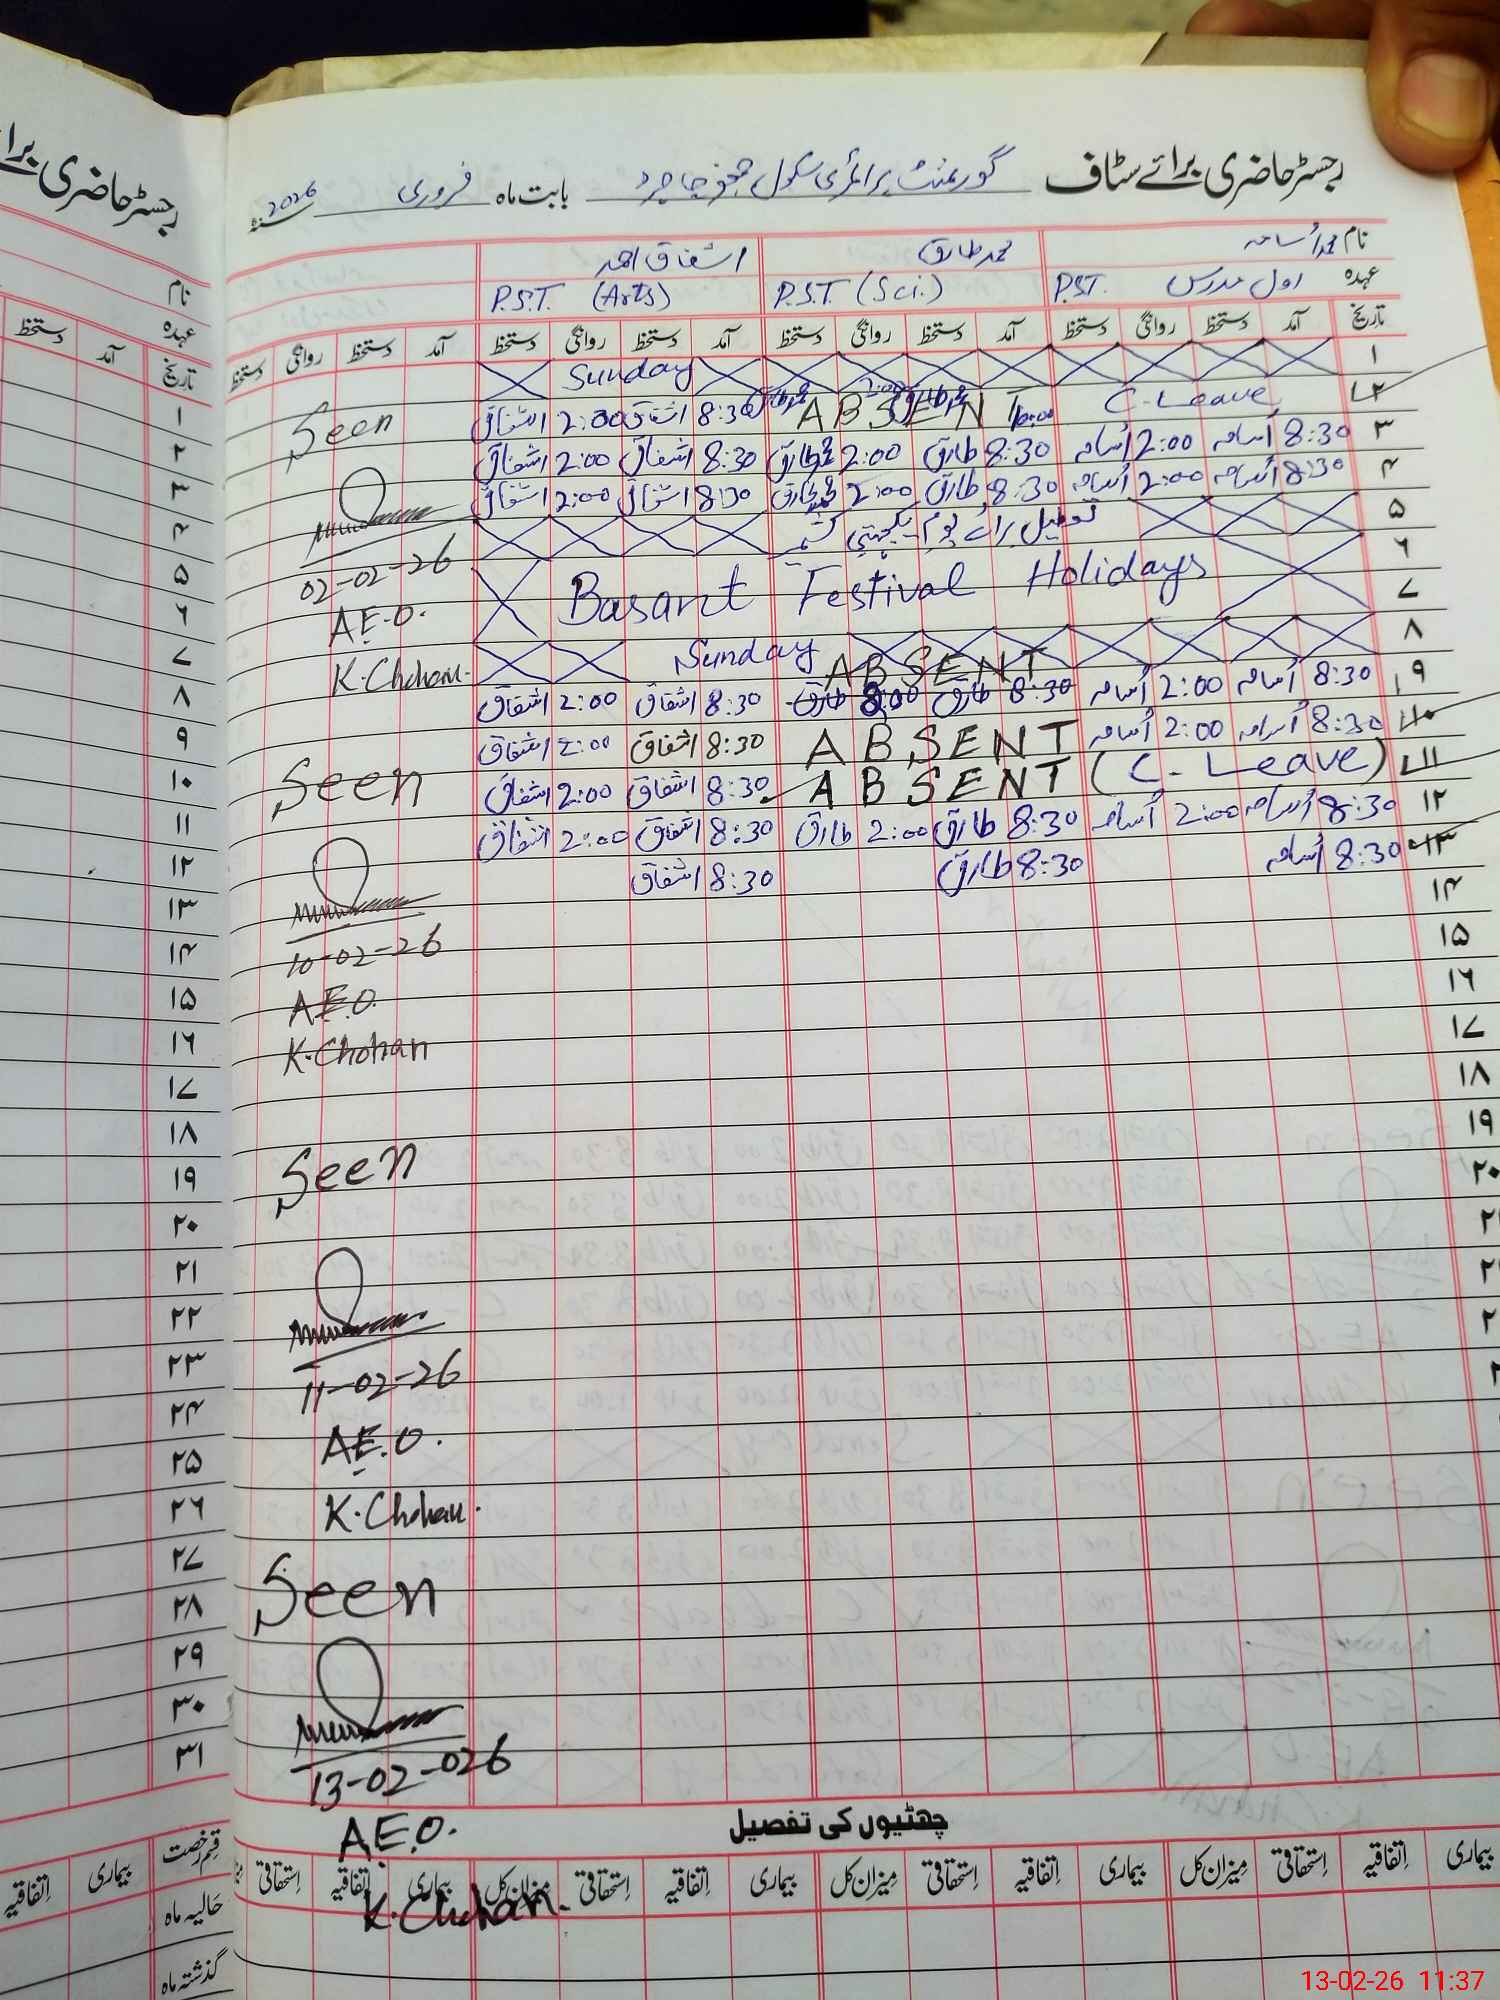 رجسٹر حاضری برائے سٹاف گورنمنٹ پرائمری سکول بابت ماہ فروری سنہ 2026
نام محمد اُسامہ محمد طارق اشفاق احمد
عہدہ اول مدرس P.S.T. P.S.T. (Sci.) P.S.T. (Arts)
تاریخ آمد دستخظ روانگی دستخظ آمد دستخظ روانگی دستخظ آمد دستخظ روانگی دستخظ آمد دستخظ روانگی دستخظ
۱ Sunday
۲ C-Leave ABSENT 8:30 اشفاق 2:00 اشفاق
۳ 8:30 اُسامہ 2:00 اُسامہ 8:30 طارق 2:00 طارق 8:30 اشفاق 2:00 اشفاق
۴ 8:30 اُسامہ 2:00 اُسامہ 8:30 طارق 2:00 طارق 8:30 اشفاق 2:00 اشفاق
۵ تعطیل برائے یوم یکجہتی کشمیر
۶ Basant Festival Holidays
۷
۸ Sunday
ABSENT
۹ 8:30 اُسامہ 2:00 اُسامہ 8:30 طارق طارق 8:30 اشفاق 2:00 اشفاق
۱۰ 8:30 اُسامہ 2:00 اُسامہ ABSENT 8:30 اشفاق 2:00 اشفاق
۱۱ (C-Leave) ABSENT 8:30 اشفاق 2:00 اشفاق
۱۲ 8:30 اُسامہ 2:00 اُسامہ 8:30 طارق 2:00 طارق 8:30 اشفاق 2:00 اشفاق
۱۳ 8:30 اُسامہ 8:30 طارق 8:30 اشفاق
۱۴
۱۵
۱۶
۱۷
۱۸
۱۹
۲۰
Seen
02-02-26
A.E.O.
K.Chohan.
Seen
10-02-26
A.E.O.
K.Chohan
Seen
11-02-26
A.E.O.
K.Chohan.
Seen
13-02-026
A.E.O.
K.Chohan.
چھٹیوں کی تفصیل
بیماری اِتفاقیہ اِستحقاقی مِیزان کل بیماری اِتفاقیہ اِستحقاقی مِیزان کل بیماری اِتفاقیہ اِستحقاقی مِیزان کل بیماری اِتفاقیہ اِستحقاقی
رجسٹر حاضری برائے
نام
عہدہ
تاریخ آمد دستخظ
۱
۲
۳
۴
۵
۶
۷
۸
۹
۱۰
۱۱
۱۲
۱۳
۱۴
۱۵
۱۶
۱۷
۱۸
۱۹
۲۰
۲۱
۲۲
۲۳
۲۴
۲۵
۲۶
۲۷
۲۸
۲۹
۳۰
۳۱
قسم رخصت بیماری اِتفاقیہ
حالیہ ماہ
گذشتہ ماہ
13-02-26 11:37